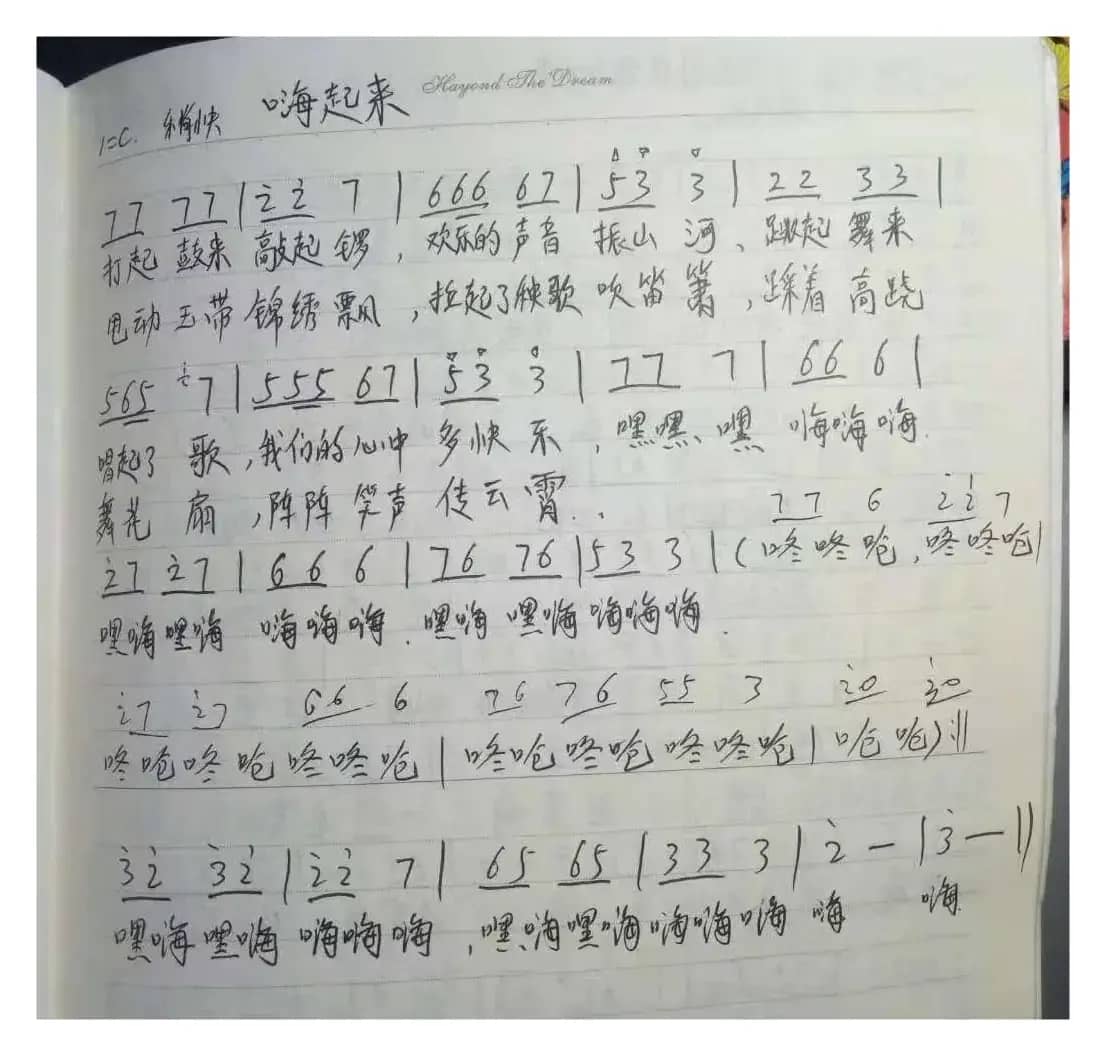 Hayond The Dream
1=C. 稍快 嗨起来
77 77 | i̇2̇ 7 | 666 67 | 53 3 | 22 33 |
打起 鼓来 敲起 锣 , 欢乐的 声音 振山 河 、 跳起 舞来
甩动 玉带 锦绣 飘 , 拉起了秧歌 吹笛 箫 , 踩着 高跷
565 7 | 555 67 | 53 3 | 77 7 | 66 6 |
唱起了 歌 , 我们的 心中 多快 乐 , 嘿嘿、嘿 嗨嗨嗨.
舞花 扇 , 阵阵 笑声 传云 霄 . .
77 6 2̇2̇ 7
2̇7 2̇7 | 66 6 | 76 76 | 53 3 | ( 咚咚呛 , 咚咚呛 |
嘿嗨嘿嗨 嗨嗨嗨 . 嘿嗨 嘿嗨 嗨嗨嗨 .
2̇7 2̇7 66 6 76 76 55 3 2̇0 3̇0
咚呛咚呛 咚咚呛 | 咚呛咚呛 咚咚呛 | 呛 呛 ) :||
3̇2̇ 3̇2̇ | 2̇2̇ 7 | 65 65 | 33 3 | 2̇ — | 3̇ — ||
嘿嗨嘿嗨 嗨嗨嗨 , 嘿嗨嘿嗨 嗨嗨嗨 嗨 嗨.